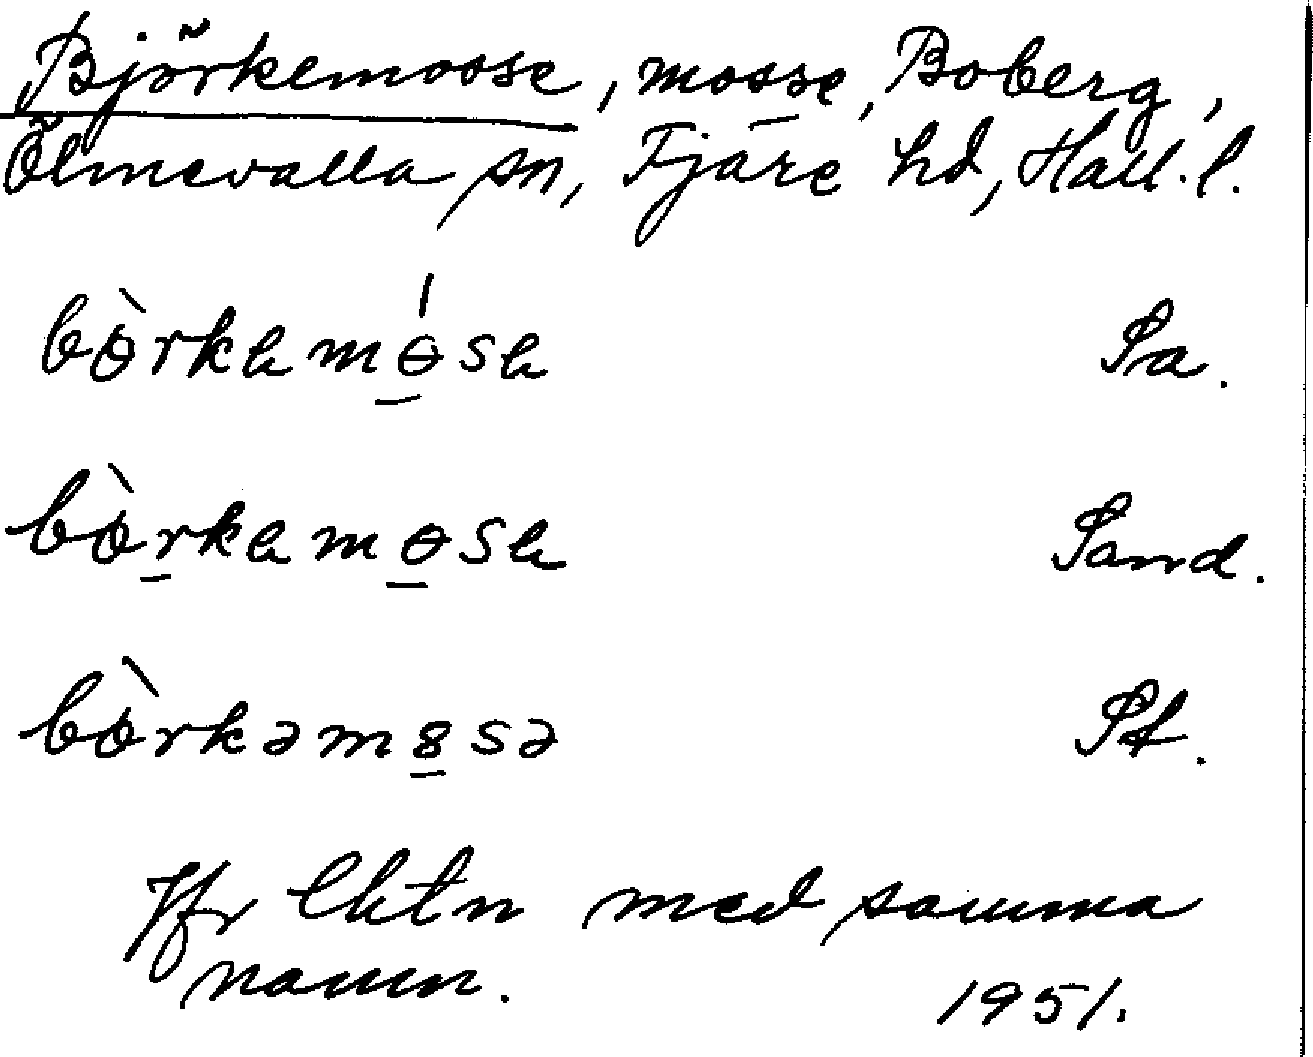 Björkemosse, mosse, Boberg,
Ölmevalla sn, Fjäre hd, Hall. l.
bòrkamósa Sa.
bòrkamosa Sand.
bòrkəm8sə St.
Jfr lhtn med samma
namn. 1951.